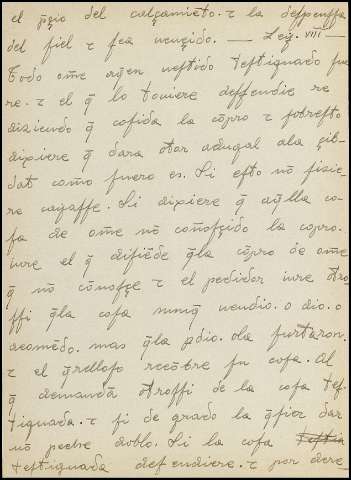 el p̃çio del calçamiẽto. τ la despenssa
del fiel τ sea uençido. — Ley. VIII —
Todo om̃e a quien uestido testiguado fue
re. τ el q̃ lo touiere deffendie re
diziendo q̃ cosida la cõpro τ sobresto
dixiere q̃ dara otor adugal ala çib-
dat como fuero es. Si esto nõ fizie-
re cayasse. Si dixiere q̃ aq̃lla co-
sa de om̃e nõ coñosçido la cõpro.
iure el q̃ difiẽde q̃la cõpro de om̃e
q̃ nõ cõnosçe τ el pedidor iure otro
ssi q̃la cosa nunq̃ uendio. o dio. o
acomẽdo. mas q̃la pdio. ola furtaron.
τ el q̃relloso recobre su cosa. Al
q̃ demandã otrossi de la cosa tes-
tiguada. τ si de grado la q̃sier dar
nõ peche doblo. Si la cosa
testiguada defendiere. τ por dere